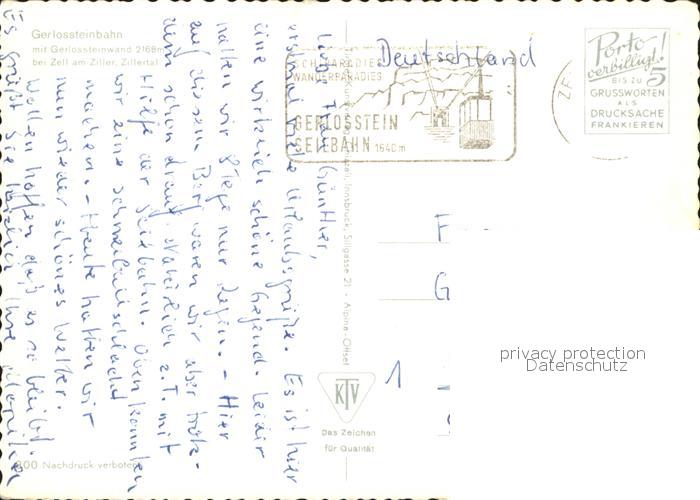 Gerlossteinbahn
mit Gerlossteinwand 2168m
bei Zell am Ziller, Zillertal
Deutschland
SCHIPARADIES
WANDERPARADIES
GERLOSSTEIN
SEILBAHN 1640 m
Porto
verbilligt!
BIS ZU 5
GRUSSWORTEN
ALS
DRUCKSACHE
FRANKIEREN
Liebe Frau Günther,
erstmal viele Urlaubsgrüße. Es ist hier
eine wirklich schöne Gegend. Leider
hatten wir 8 Tage nur Regen. - Hier
auf diesem Berg waren wir aber trotz-
dem schon drauf. Natürlich z.T. mit
Hilfe der Seilbahn. Oben konnten
wir eine Schneeballschlacht
machen. - Heute hatten wir
nun wieder schönes Wetter.
Wollen hoffen daß es so bleibt.
Es grüßt Sie herzlich Ihre
Innsbruck, Sillgasse 21 - Alpina-Offset
F
G
1
KTV
Das Zeichen
für Qualität
privacy protection
Datenschutz
800 Nachdruck verboten